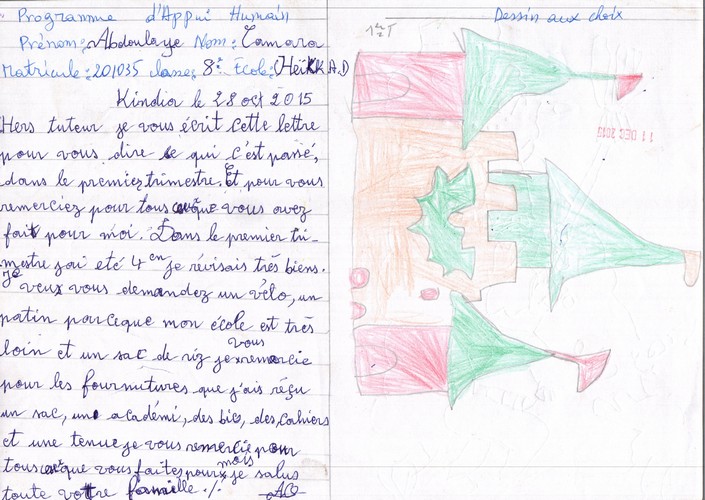 Programme d'Appui Humain
Prénom: Abdoulaye Nom: Camara
Matricule: 201035 classe: 8e École: (HeïKK A.D)
Kindia le 28 oct 2015
Hers tuteur je vous écrit cette lettre
pour vous dire ce qui c'est passé,
dans le premier trimestre. Et pour vous
remerciez pour tous ce que vous avez
fait pour moi. Dans le premier tri-
mestre j'ai eté 4en je révisais très biens.
Je veux vous demandez un vélo, un
patin parceque mon école est très
loin et un sac de riz je vous remercie
pour les fournitures que j'ais réçu
un sac, une académi, des bics, des cahiers
et une tenue je vous remercie pour
tous ce que vous faites pour mois je salus
toute votre famille ./.
Dessin aux choix
1er T
11 DEC 2015